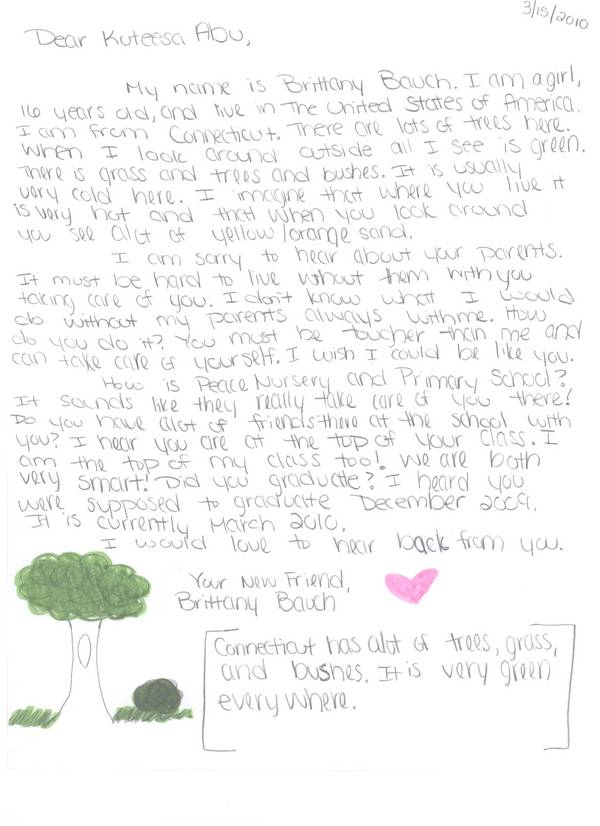 3/15/2010
Dear Kuteesa Abu,
My name is Brittany Bauch. I am a girl,
16 years old, and live in the United States of America.
I am from Connecticut. There are lots of trees here.
When I look around outside all I see is green.
There is grass and trees and bushes. It is usually
very cold here. I imagine that where you live it
is very hot and that when you look around
you see alot of yellow/orange sand.
I am sorry to hear about your parents.
It must be hard to live without them with you
taking care of you. I don't know what I would
do without my parents always with me. How
do you do it? You must be toucher than me and
can take care of yourself. I wish I could be like you.
How is Peace Nursery and Primary School?
It sounds like they really take care of you there!
Do you have alot of friends there at the school with
you? I hear you are at the top of your class. I
am the top of my class too! We are both
very smart! Did you graduate? I heard you
were supposed to graduate December 2009.
It is currently March 2010.
I would love to hear back from you.
Your New Friend,
Brittany Bauch
Connecticut has alot of trees, grass,
and bushes. It is very green
everywhere.